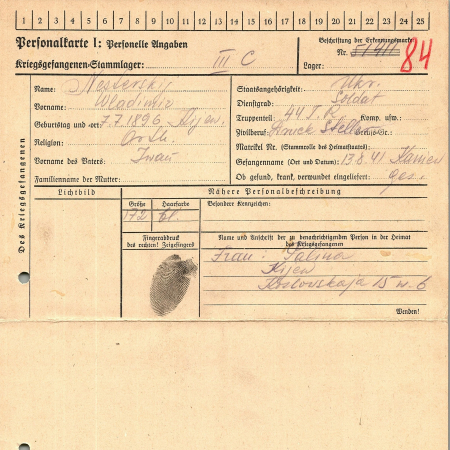 1 2 3 4 5 6 7 8 9 10 11 12 13 14 15 16 17 18 19 20 21 22 23 24 25
Personalkarte I: Personelle Angaben
Kriegsgefangenen-Stammlager: III C
Beschriftung der Erkennungsmarke
Nr. 51411 84
Lager:
Des Kriegsgefangenen
Name: Nesterskij
Vorname: Wladimir
Geburtstag und -ort: 7.7.1896 Kijew
Religion: Orth.
Vorname des Vaters: Iwan
Familienname der Mutter:
Staatsangehörigkeit: Ukr.
Dienstgrad: Soldat
Truppenteil: 44 I.R. Komp. usw.:
Zivilberuf: Berufs-Gr.:
Matrikel Nr. (Stammrolle des Heimatstaates):
Gefangennahme (Ort und Datum): 13.8.41 Kaniew
Ob gesund, krank, verwundet eingeliefert: ges.
Lichtbild
Nähere Personalbeschreibung
Größe Haarfarbe
172 bl.
Besondere Kennzeichen:
Fingerabdruck
des rechten! Zeigefingers
Name und Anschrift der zu benachrichtigenden Person in der Heimat
des Kriegsgefangenen
Frau: Galina
Kijew
Koslowskaja 15 w. 6
Wenden!